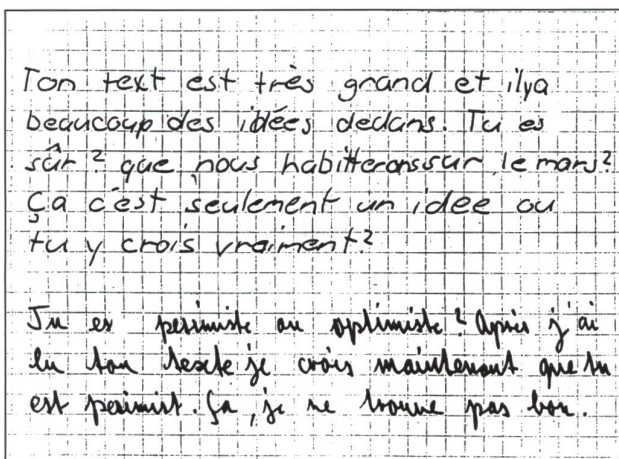 Ton text est très grand et ilya
beaucoup des idées dedans. Tu es
sûr? que nous habitteronssur le mars?
Ça c'est seulement un idee ou
tu y crois vraiment?
Tu es pesimiste ou optimiste? Après j'ai
lu ton texte je crois maintenant que tu
est pesimist. Ça, je ne trouve pas bon.